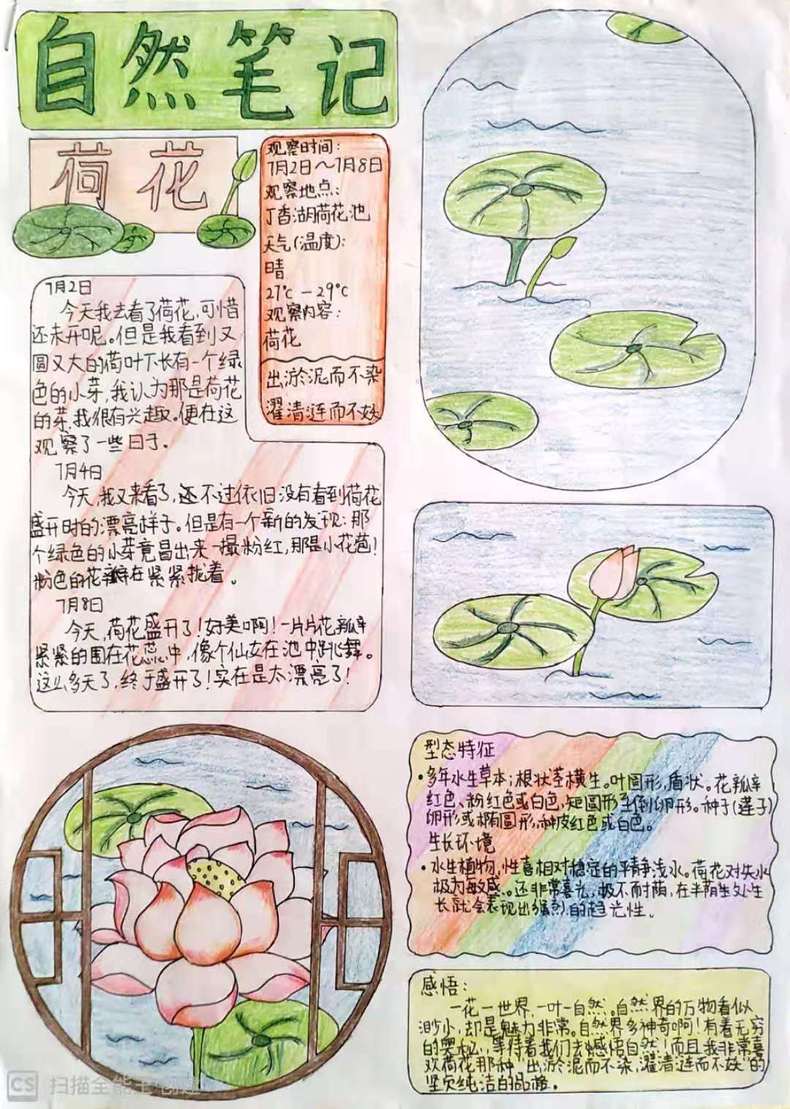 自然笔记
荷花
观察时间:
7月2日～7月8日
观察地点:
丁香湖荷花池
天气(温度):
晴
21℃-29℃
观察内容:
荷花
出淤泥而不染
濯清涟而不妖
7月2日
今天我去看了荷花,可惜
还未开呢。但是我看到又
圆又大的荷叶下长有一个绿
色的小芽,我认为那是荷花
的芽,我很有兴趣。便在这
观察了一些日子。
7月4日
今天,我又来看了,还不过依旧没有看到荷花
盛开时的漂亮样子。但是有一个新的发现:那
个绿色的小芽竟冒出来一撮粉红,那是小花苞!
粉色的花瓣在紧紧拢着。
7月8日
今天,荷花盛开了!好美啊!一片片花瓣
紧紧的围在花蕊中,像个仙女在池中跳舞。
这么多天了,终于盛开了!实在是太漂亮了!
型态特征
•多年水生草本;根状茎横生。叶圆形,盾状。花瓣
红色、粉红色或白色,矩圆形至倒卵形。种子(莲子)
卵形或椭圆形,种皮红色或白色。
生长环境
•水生植物,性喜相对稳定的平静浅水。荷花对失水
极为敏感。还非常喜光,极不耐荫,在半荫生处生
长就会表现出强烈的趋光性。
感悟:
一花一世界,一叶一自然。自然界的万物看似
渺小,却是魅力非常。自然界多神奇啊!有着无穷
的奥秘,等待着我们去感悟自然!而且我非常喜
欢荷花那种,出淤泥而不染,濯清涟而不妖的
坚贞纯洁的品格。
CS 扫描全能王